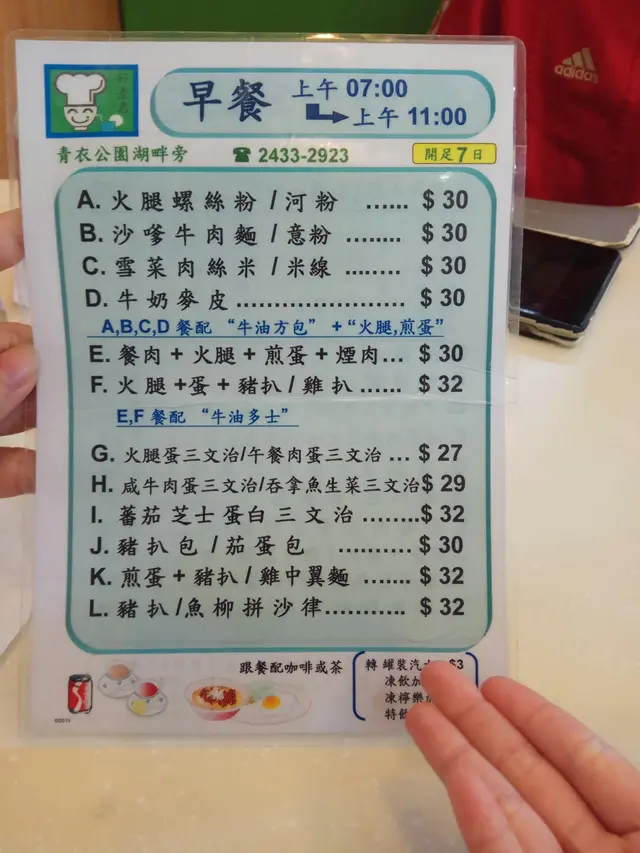 早餐 上午 07:00
上午 11:00
青衣公園湖畔旁 ☎ 2433-2923 開足7日
A. 火腿螺絲粉 / 河粉 ...... $ 30
B. 沙嗲牛肉麵 / 意粉 ........ $ 30
C. 雪菜肉絲米 / 米線 ........ $ 30
D. 牛奶麥皮........................ $ 30
A,B,C,D 餐配 “牛油方包” + “火腿,煎蛋”
E. 餐肉 + 火腿 + 煎蛋 + 煙肉... $ 30
F. 火腿 +蛋 + 豬扒 / 雞扒 ...... $ 32
E,F 餐配 “牛油多士”
G. 火腿蛋三文治/午餐肉蛋三文治 ... $ 27
H. 咸牛肉蛋三文治/吞拿魚生菜三文治$ 29
I. 蕃茄芝士蛋白三文治 ........$ 32
J. 豬扒包 / 茄蛋包 .......... $ 30
K. 煎蛋 + 豬扒 / 雞中翼麵 ....... $ 32
L. 豬扒 /魚柳拼沙律........... $ 32
跟餐配咖啡或茶
轉罐裝汽 $3
凍飲加
凍檸樂
特飲
adidas